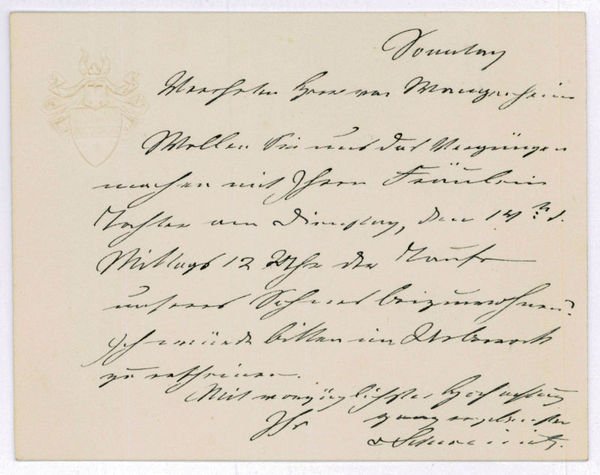 Sonntag
Verehrter Herr von Wangenheim
Wollen Sie uns das Vergnügen
machen mit Ihrer Fräulein
Tochter am Dienstag, den 14ᵗ d.
Mittags 12 Uhr der Taufe
unseres Sohnes beizuwohnen?
Ich würde bitten im Überrock
zu erscheinen.
Mit vorzüglichster Hochachtung
Ihr ganz ergebenster